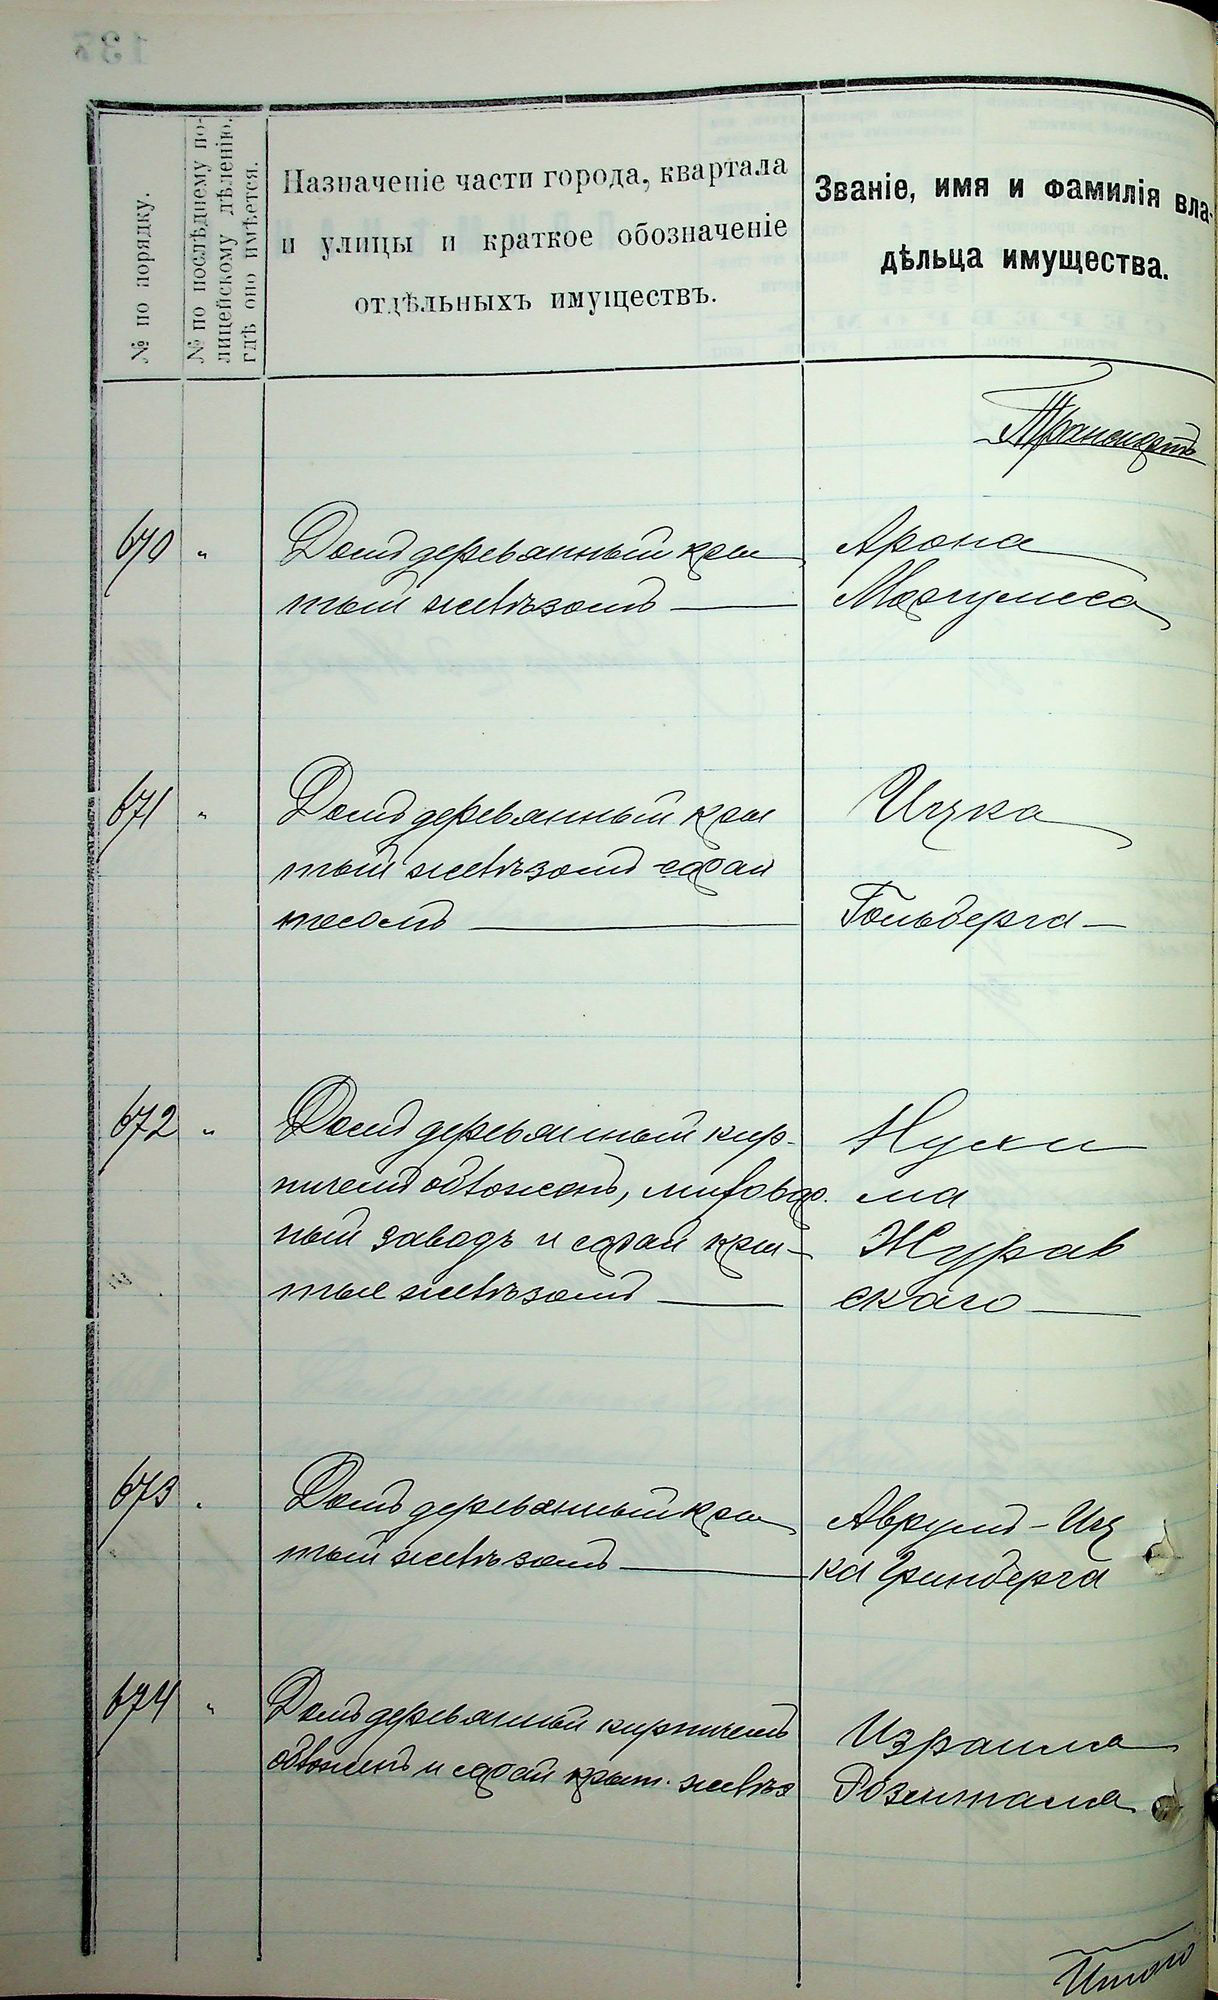 № по порядку.
№ по послѣднему по-
лицейскому дѣленію.
гдѣ оно имѣется.
Назначеніе части города, квартала
и улицы и краткое обозначеніе
отдѣльныхъ имуществъ.
Званіе, имя и фамилія вла-
дѣльца имущества.
Транспортъ
670 „ Домъ деревянный кры
тый желѣзомъ —
Арона
Маргулиса
671 „ Домъ деревянный кры
тый желѣзомъ сарай
тесомъ —
Ицка
Гольдберга —
672 „ Домъ деревянный кир-
пичемъ обложенъ, пивовар.
ный заводъ и сарай кры-
тые желѣзомъ —
Нухи
ма
Журав
скаго —
673 „ Домъ деревянный кры
тый желѣзомъ —
Аврумъ-Иц
ка Гринберга
674 „ Домъ деревянный кирпичемъ
обложенъ и сарай крыт. желѣз
Израиля
Розенталя
Итого